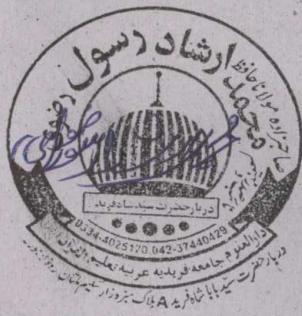 صاحبزادہ مولانا حافظ
محمد ارشاد رسول رضوی
دربار حضرت سید شاہ فرید
0334-4025170, 042-37440429
دارالعلوم جامعہ فریدیہ عربیہ تعلیم القرآن
دربار حضرت سید بابا شاہ فرید A بلاک سبزہ زار سکیم ملتان روڈ لاہور